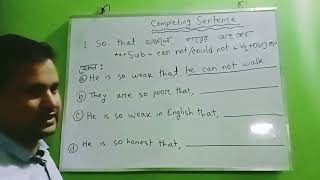 Completing Sentence
1. So that থাকলে পরের অংশে
***Sub + can not/could not + V1 + Obj
যেমন:
(a) He is so weak that he can not walk
(b) They are so poor that,
(c) He is so weak in English that,
(d) He is so honest that,